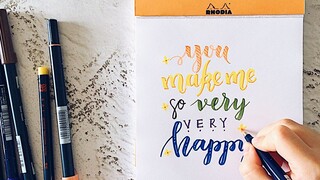 RHODIA
you
make me
so very
VERY
happy